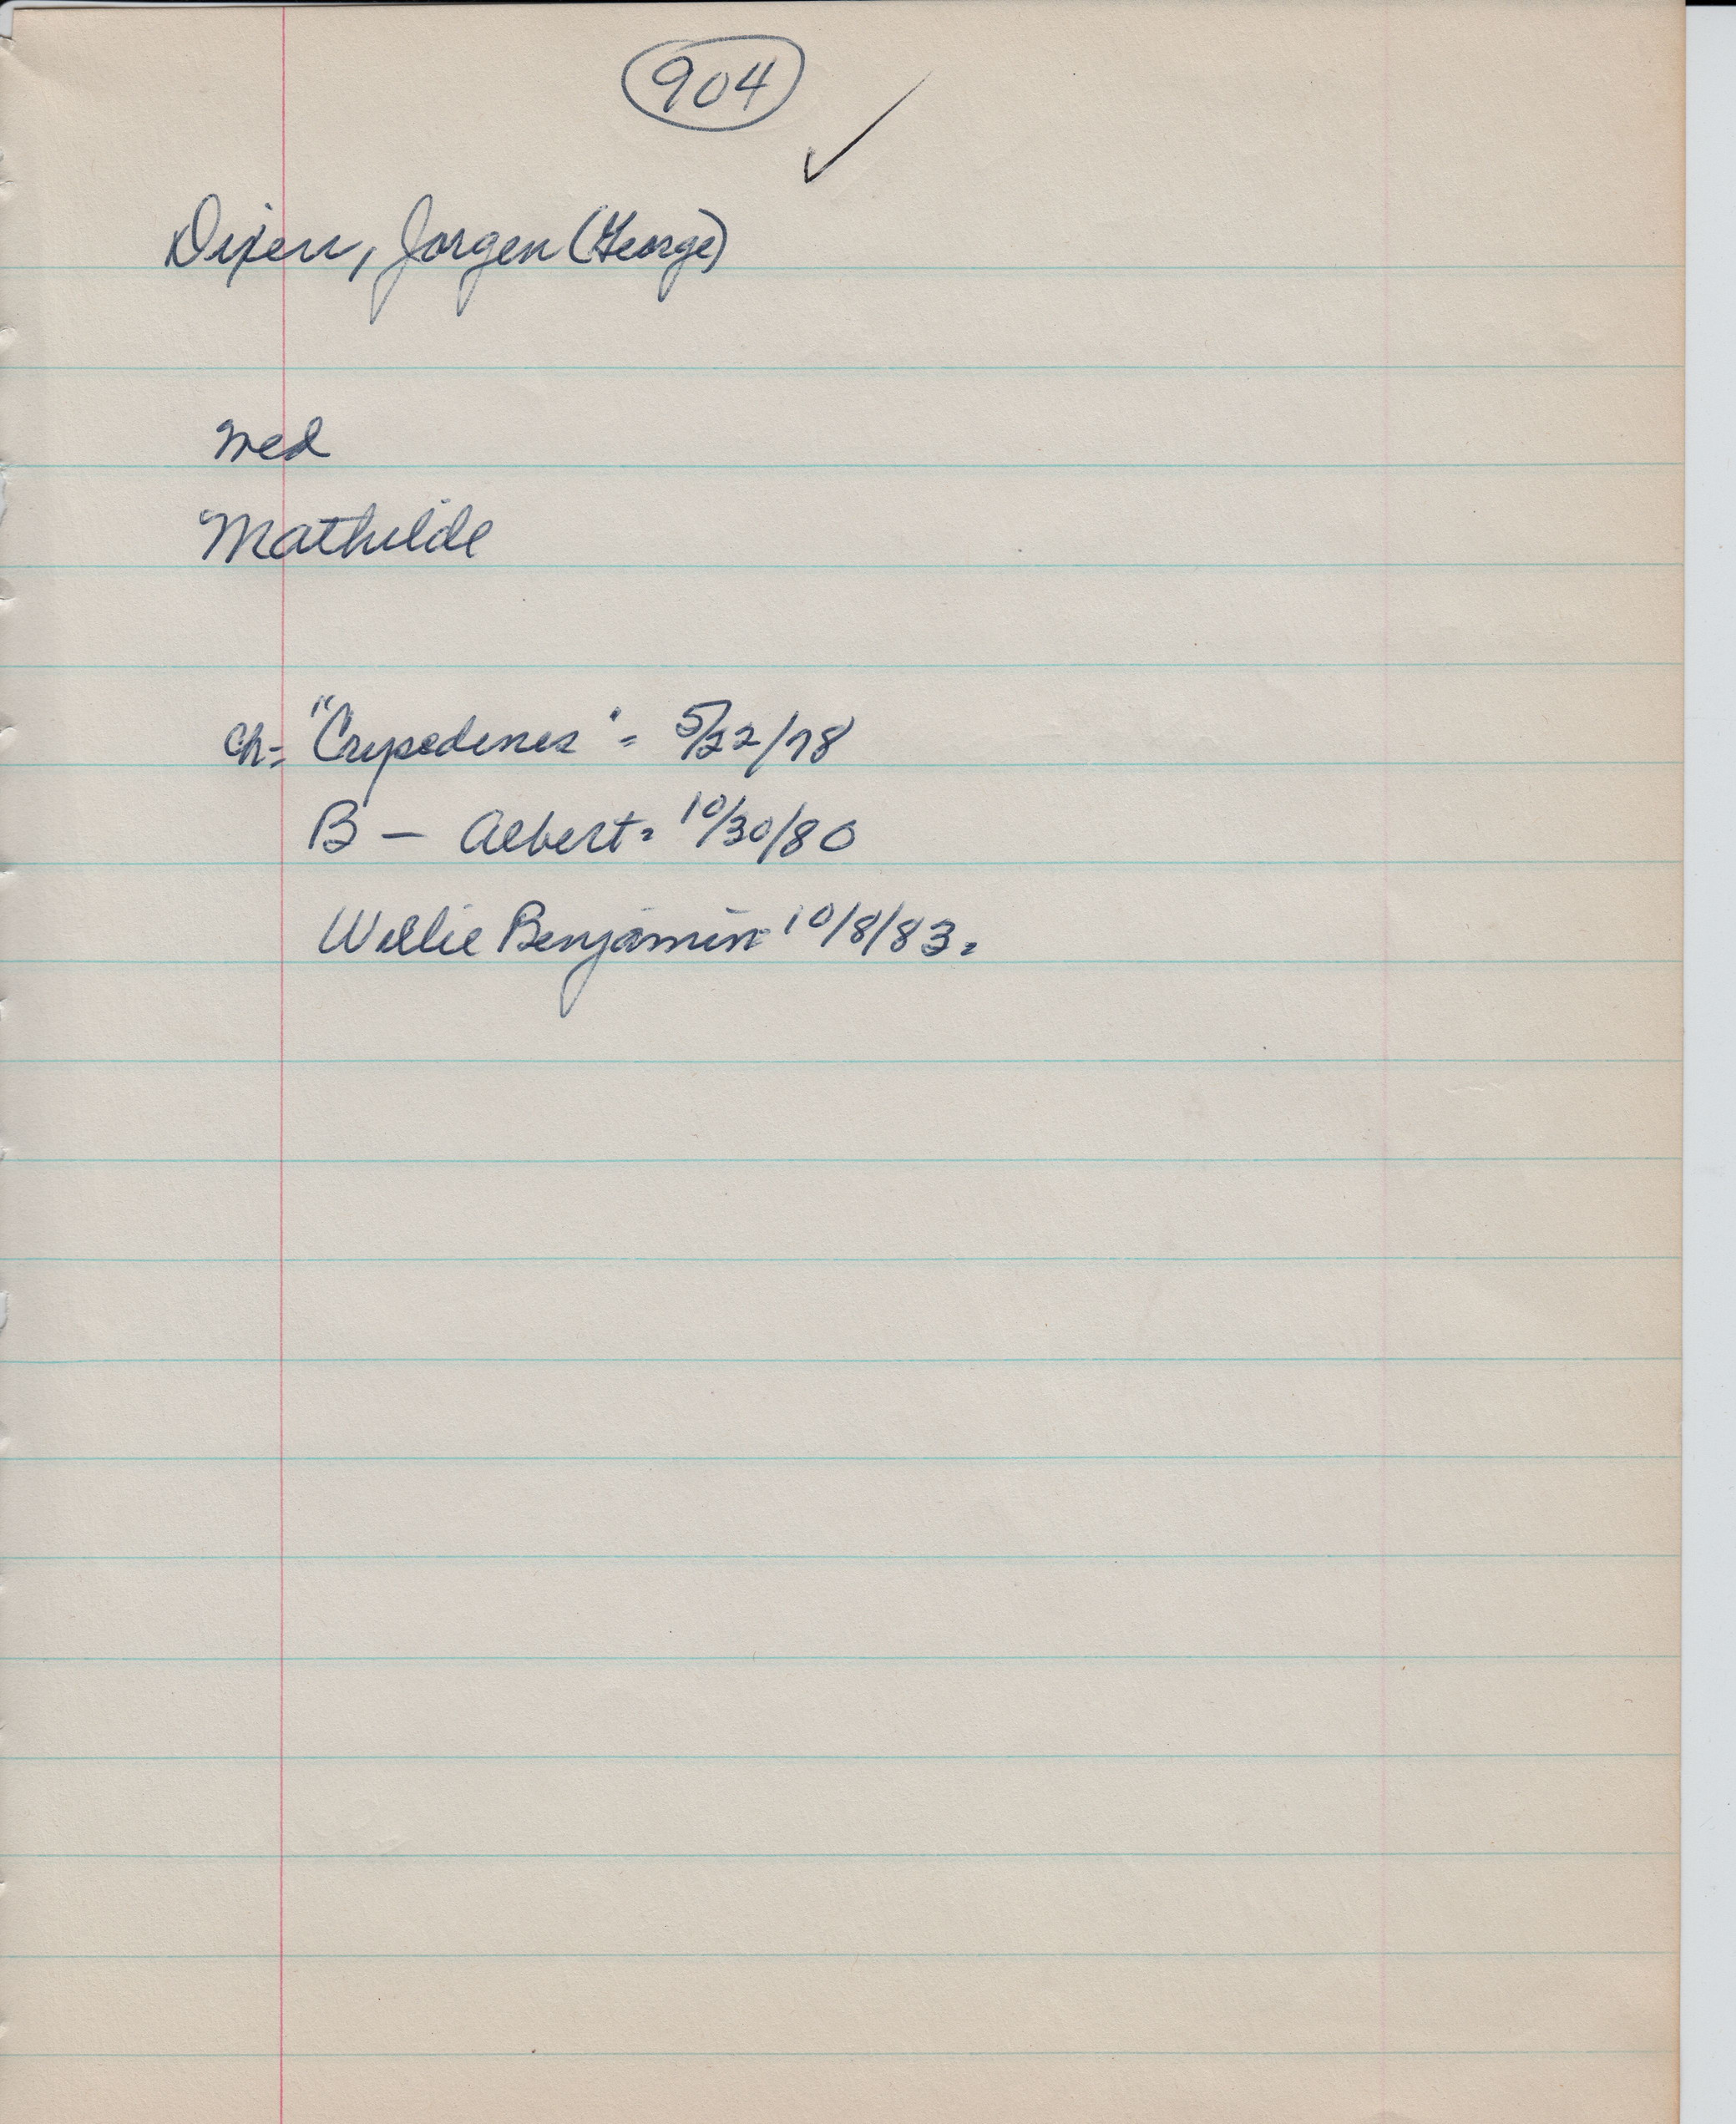 904
Dixen, Jorgen (George)
med
Mathilde
Ch- "Crysedines" = 5/22/78
B - Albert = 10/30/80
Willie Benjamin 10/8/83.